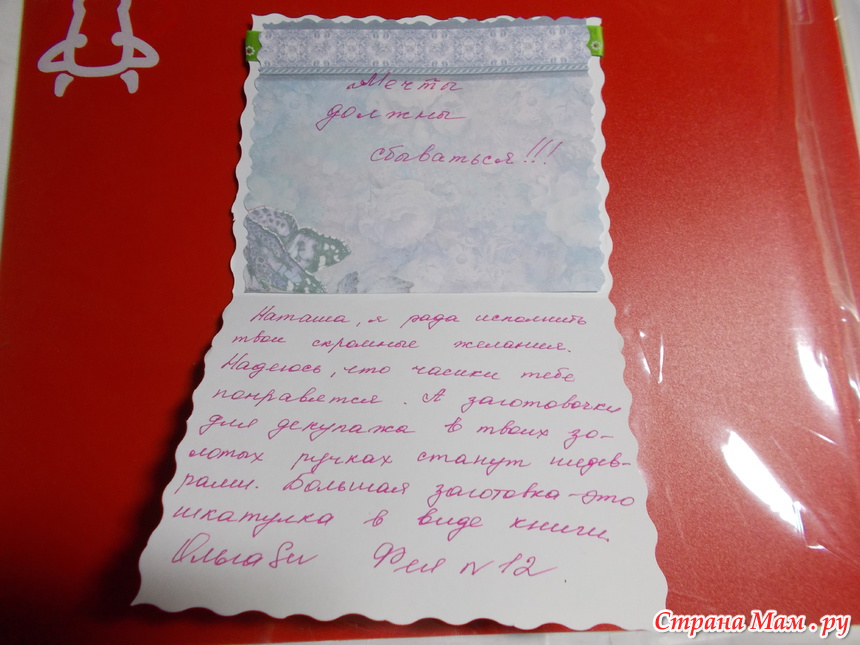 Мечты
должны
сбываться!!!
Наташа, я рада исполнить
твои скромные желания.
Надеюсь, что часики тебе
понравятся. А заготовочки
для декупажа в твоих зо-
лотых ручках станут шедев-
рами. Большая заготовка - это
шкатулка в виде книги.
Фея N12
Страна Мам.ру